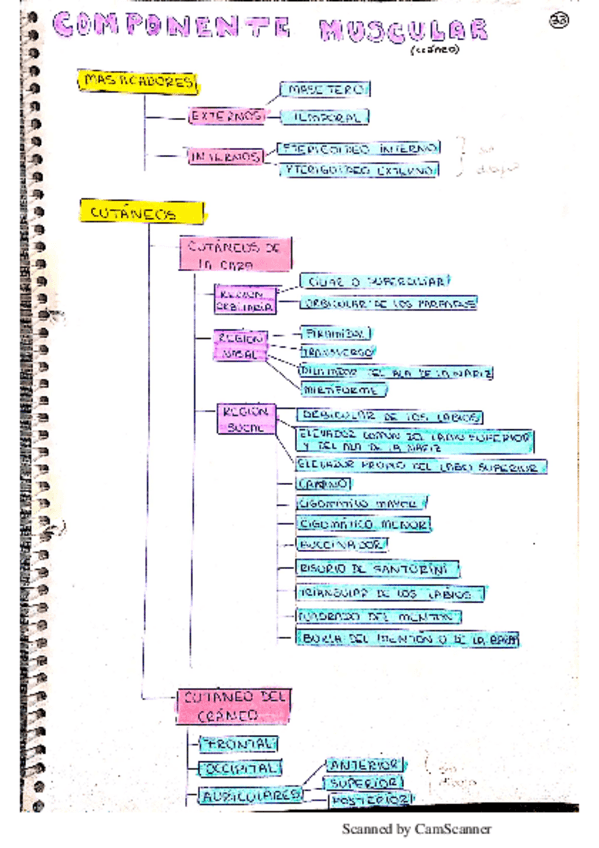 COMPONENTE MUSCULAR
(CRÁNEO)
33
MASTICADORES
MASETERO
EXTERNOS
TEMPORAL
INTERNOS
PTERIGOIDEO INTERNO
PTERIGOIDEO EXTERNO
CUTÁNEOS
CUTÁNEOS DE
LA CARA
REGION
ORBITARIA
CILIAR O SUPERCILIAR
ORBICULAR DE LOS PARPADOS
REGION
NASAL
PIRAMIDAL
TRANSVERSO
DILATADOR DEL ALA DE LA NARIZ
MIRTIFORME
REGION
BUCAL
ORBICULAR DE LOS LABIOS
ELEVADOR COMÚN DEL LABIO SUPERIOR
Y DEL ALA DE LA NARIZ
ELEVADOR PROPIO DEL LABIO SUPERIOR
CANINO
CIGOMÁTICO MAYOR
CIGOMÁTICO MENOR
BUCCINADOR
RISORIO DE SANTORINI
TRIANGULAR DE LOS LABIOS
CUADRADO DEL MENTON
BORLA DEL MENTÓN O DE LA BARBA
CUTÁNEO DEL
CRÁNEO
FRONTAL
OCCIPITAL
AURICULARES
ANTERIOR
SUPERIOR
POSTERIOR
Scanned by CamScanner